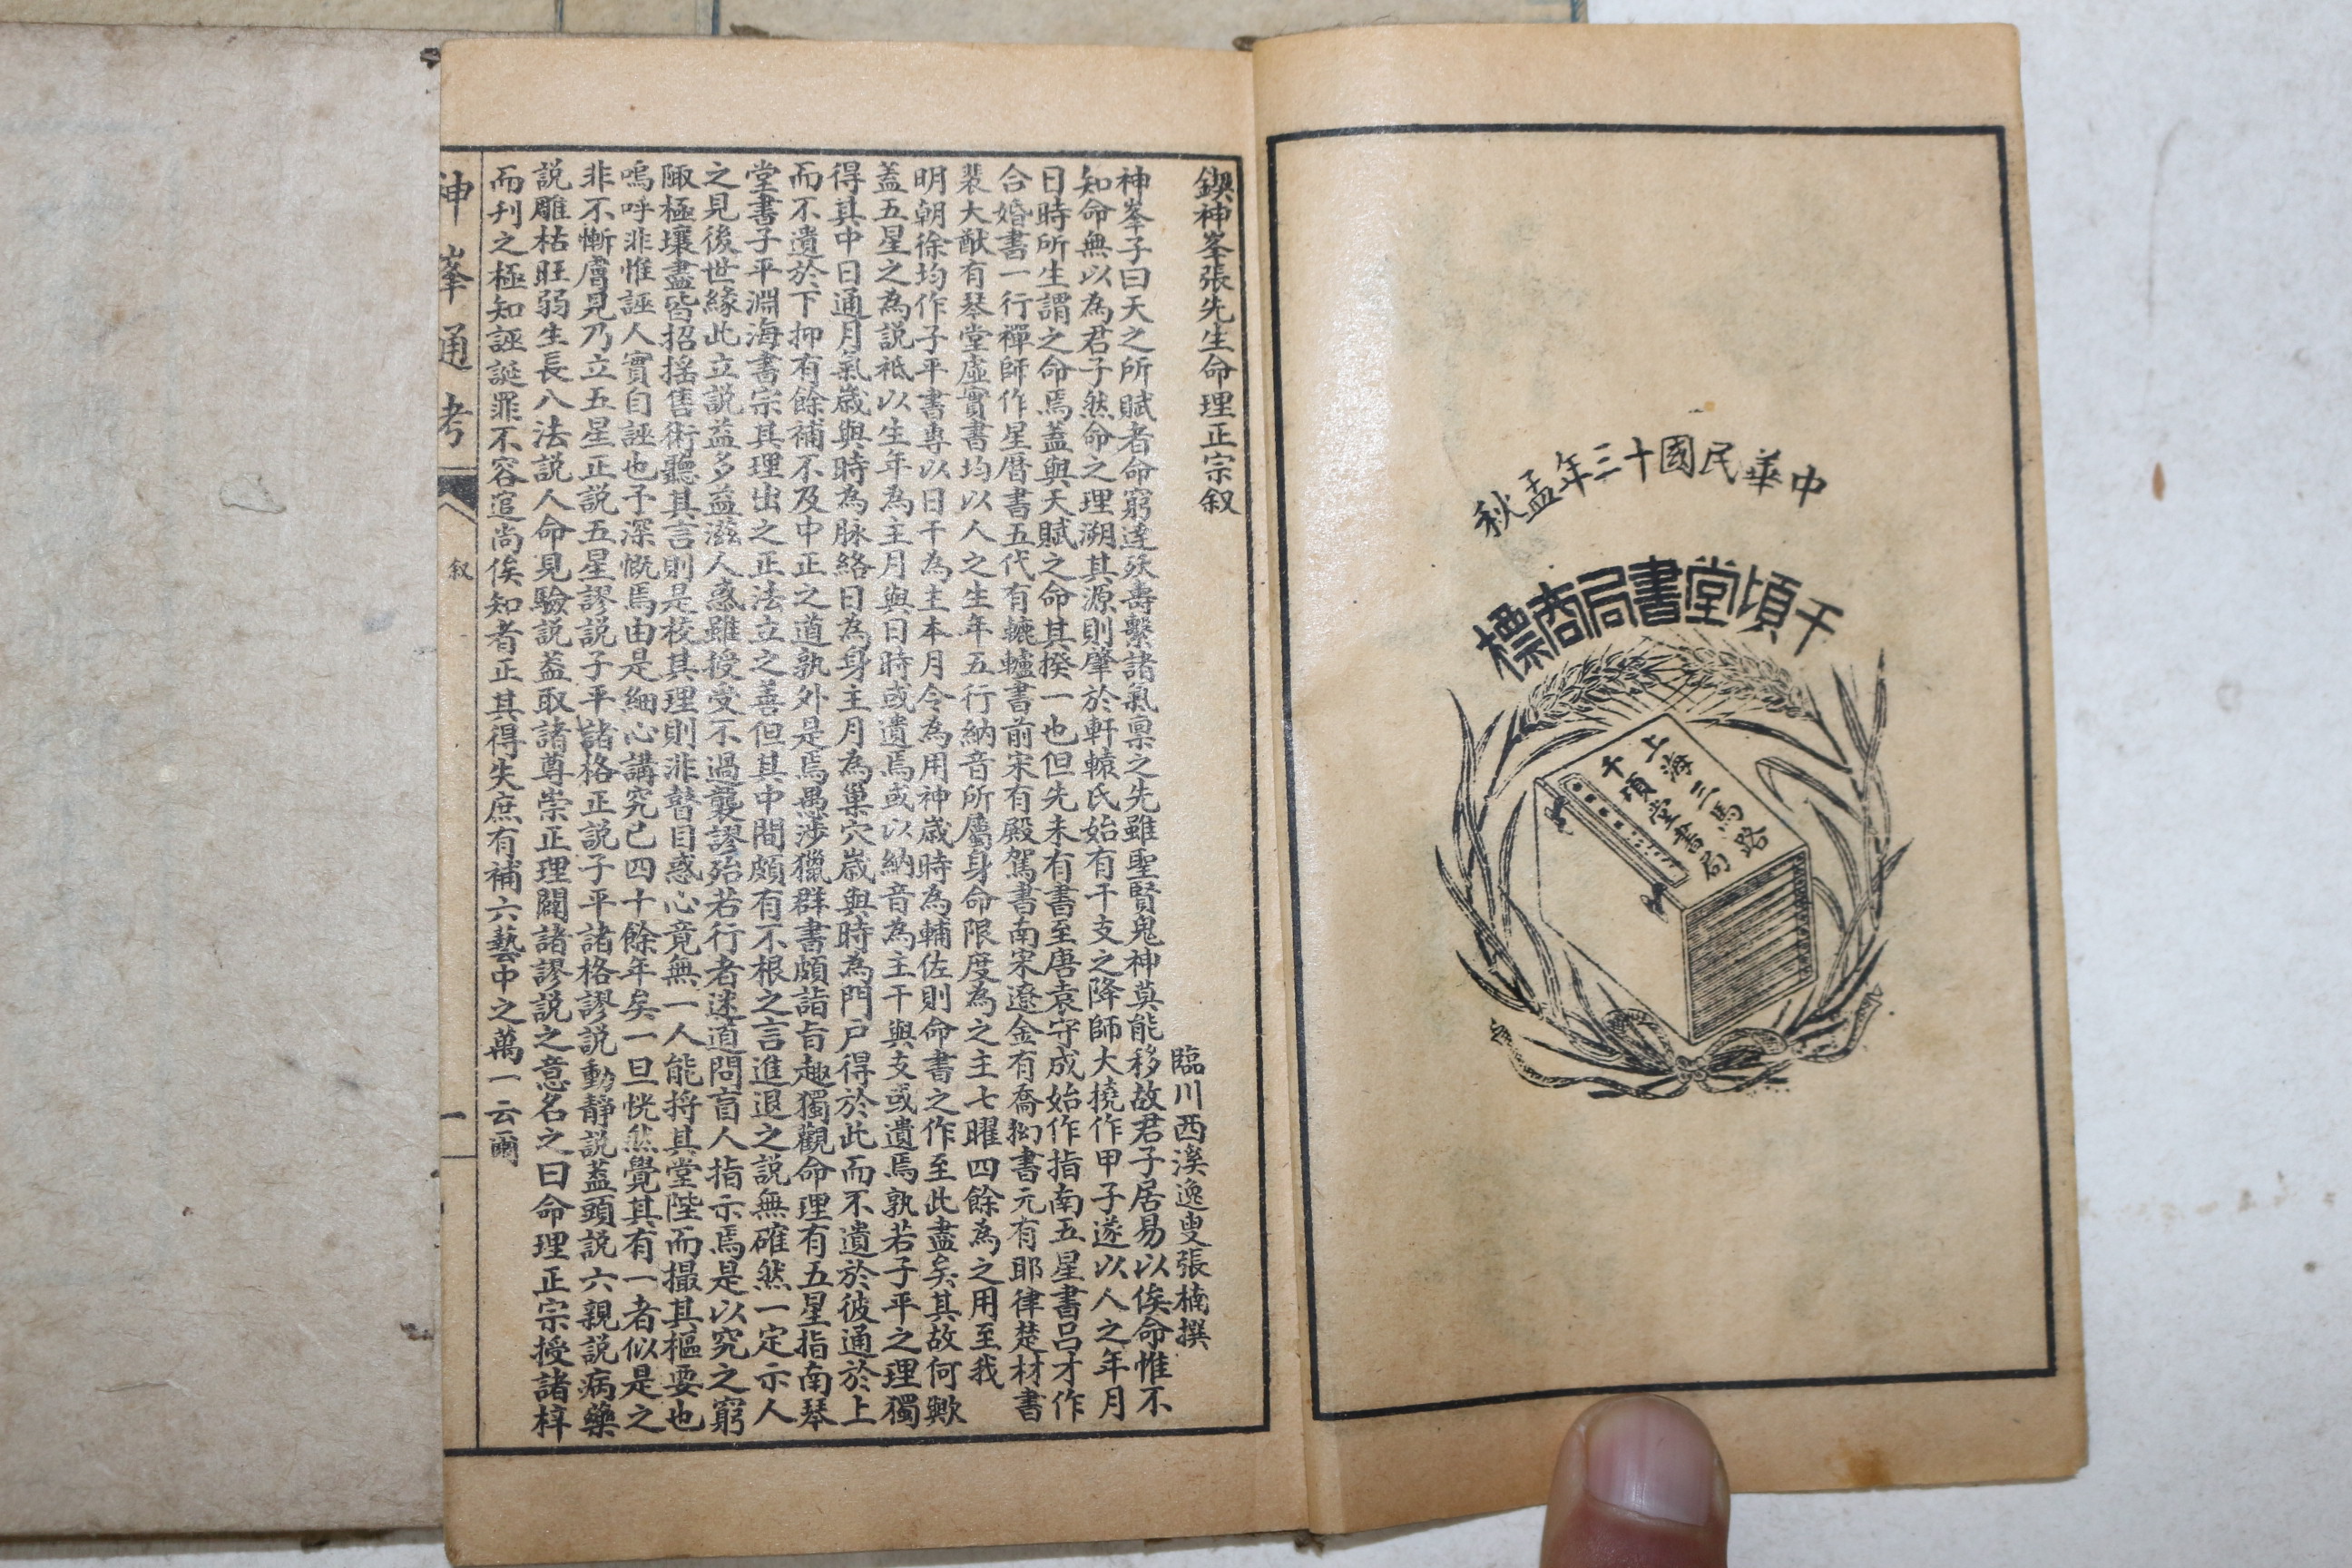 中華民國十三年孟秋
千頃堂書局商標
上海三馬路
千頃堂書局
鍥神峯張先生命理正宗叙
臨川西溪逸叟張楠撰
神峯子曰天之所賦者命窮達殀壽繫諸氣禀之先雖聖賢鬼神莫能移故君子居易以俟命惟不
知命無以為君子然命之理溯其源則肇於軒轅氏始有干支之降師大撓作甲子遂以人之年月
日時所生謂之命焉蓋與天賦之命其揆一也但先未有書至唐袁守成始作指南五星書呂才作
合婚書一行禪師作星曆書五代有轆轤書前宋有殿駕書南宋遼金有喬拗書元有耶律楚材書
裴大猷有琴堂虛實書均以人之生年五行納音所屬身命限度為之主七曜四餘為之用至我
明朝徐均作子平書專以日干為主本月令為用神歲時為輔佐則命書之作至此盡矣其故何歟
蓋五星之為説祗以生年為主月與日時或遺焉或以納音為主干與支或遺焉孰若子平之理獨
得其中日通月氣歲與時為脉絡日為身主月為巢穴歲與時為門户得於此而不遺於彼通於上
而不遺於下抑有餘補不及中正之道孰外是焉愚涉獵群書頗詣旨趣獨觀命理有五星指南琴
堂書子平淵海書宗其理出之正法立之善但其中間頗有不根之言進退之説無確然一定示人
之見後世緣此立説益多益滋人惑雖授受不過襲謬殆若行者迷道問盲人指示焉是以究之窮
陬極壤盡皆招搖售術聽其言則是校其理則非瞽目惑心竟無一人能捋其堂陛而撮其樞要也
嗚呼非惟誣人實自誣也予深慨焉由是細心講究已四十餘年矣一旦恍然覺其有一者似是之
非不慚膚見乃立五星正説五星謬説子平諸格正説子平諸格謬説動靜説蓋頭説六親説病藥
説雕枯旺弱生長八法説人命見驗説蓋取諸尊崇正理闢諸謬説之意名之曰命理正宗授諸梓
而刋之極知誣誕罪不容逭尚俟知者正其得失庶有補六藝中之萬一云爾
神峯通考
叙
一